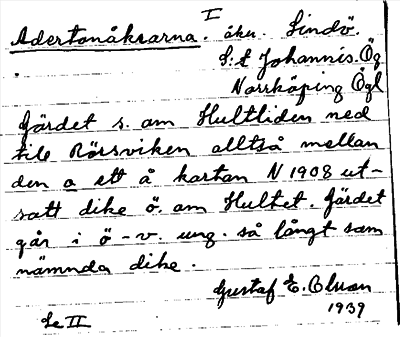 I
Adertonåkrarna. åker. Lindö.
S:t Johannis. Ög
Norrköping Ögl
Gärdet s. om Hultliden ned
till Rörsviken alltså mellan
den o ett å kartan N 1908 ut-
satt dike ö. om Hultet. Gärdet
går i ö - v. ung. så långt som
nämnda dike.
Gustaf E. Olsson
1939
Le II